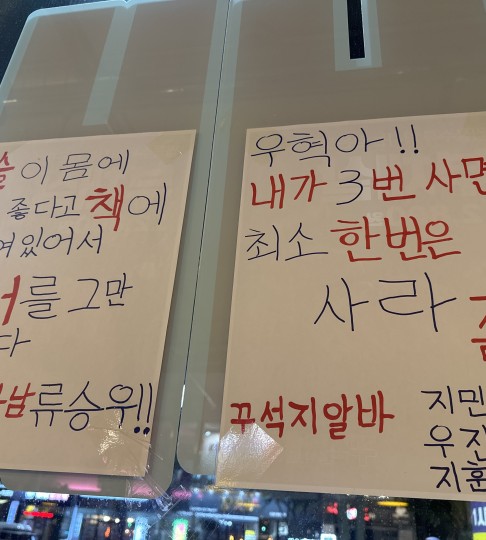 이 몸에
좋다고 책에
여있어서
를 그만
다
남류승우!!
우혁아!!
내가 3번 사면
최소 한번은
사라
꾸석지알바
지민
우진
지훈